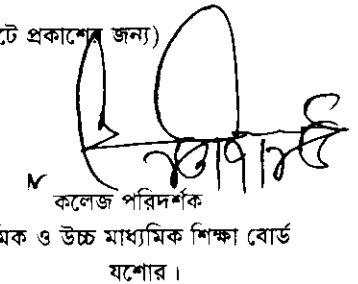 টে প্রকাশের জন্য)
কলেজ পরিদর্শক
মিক ও উচ্চ মাধ্যমিক শিক্ষা বোর্ড
যশোর।